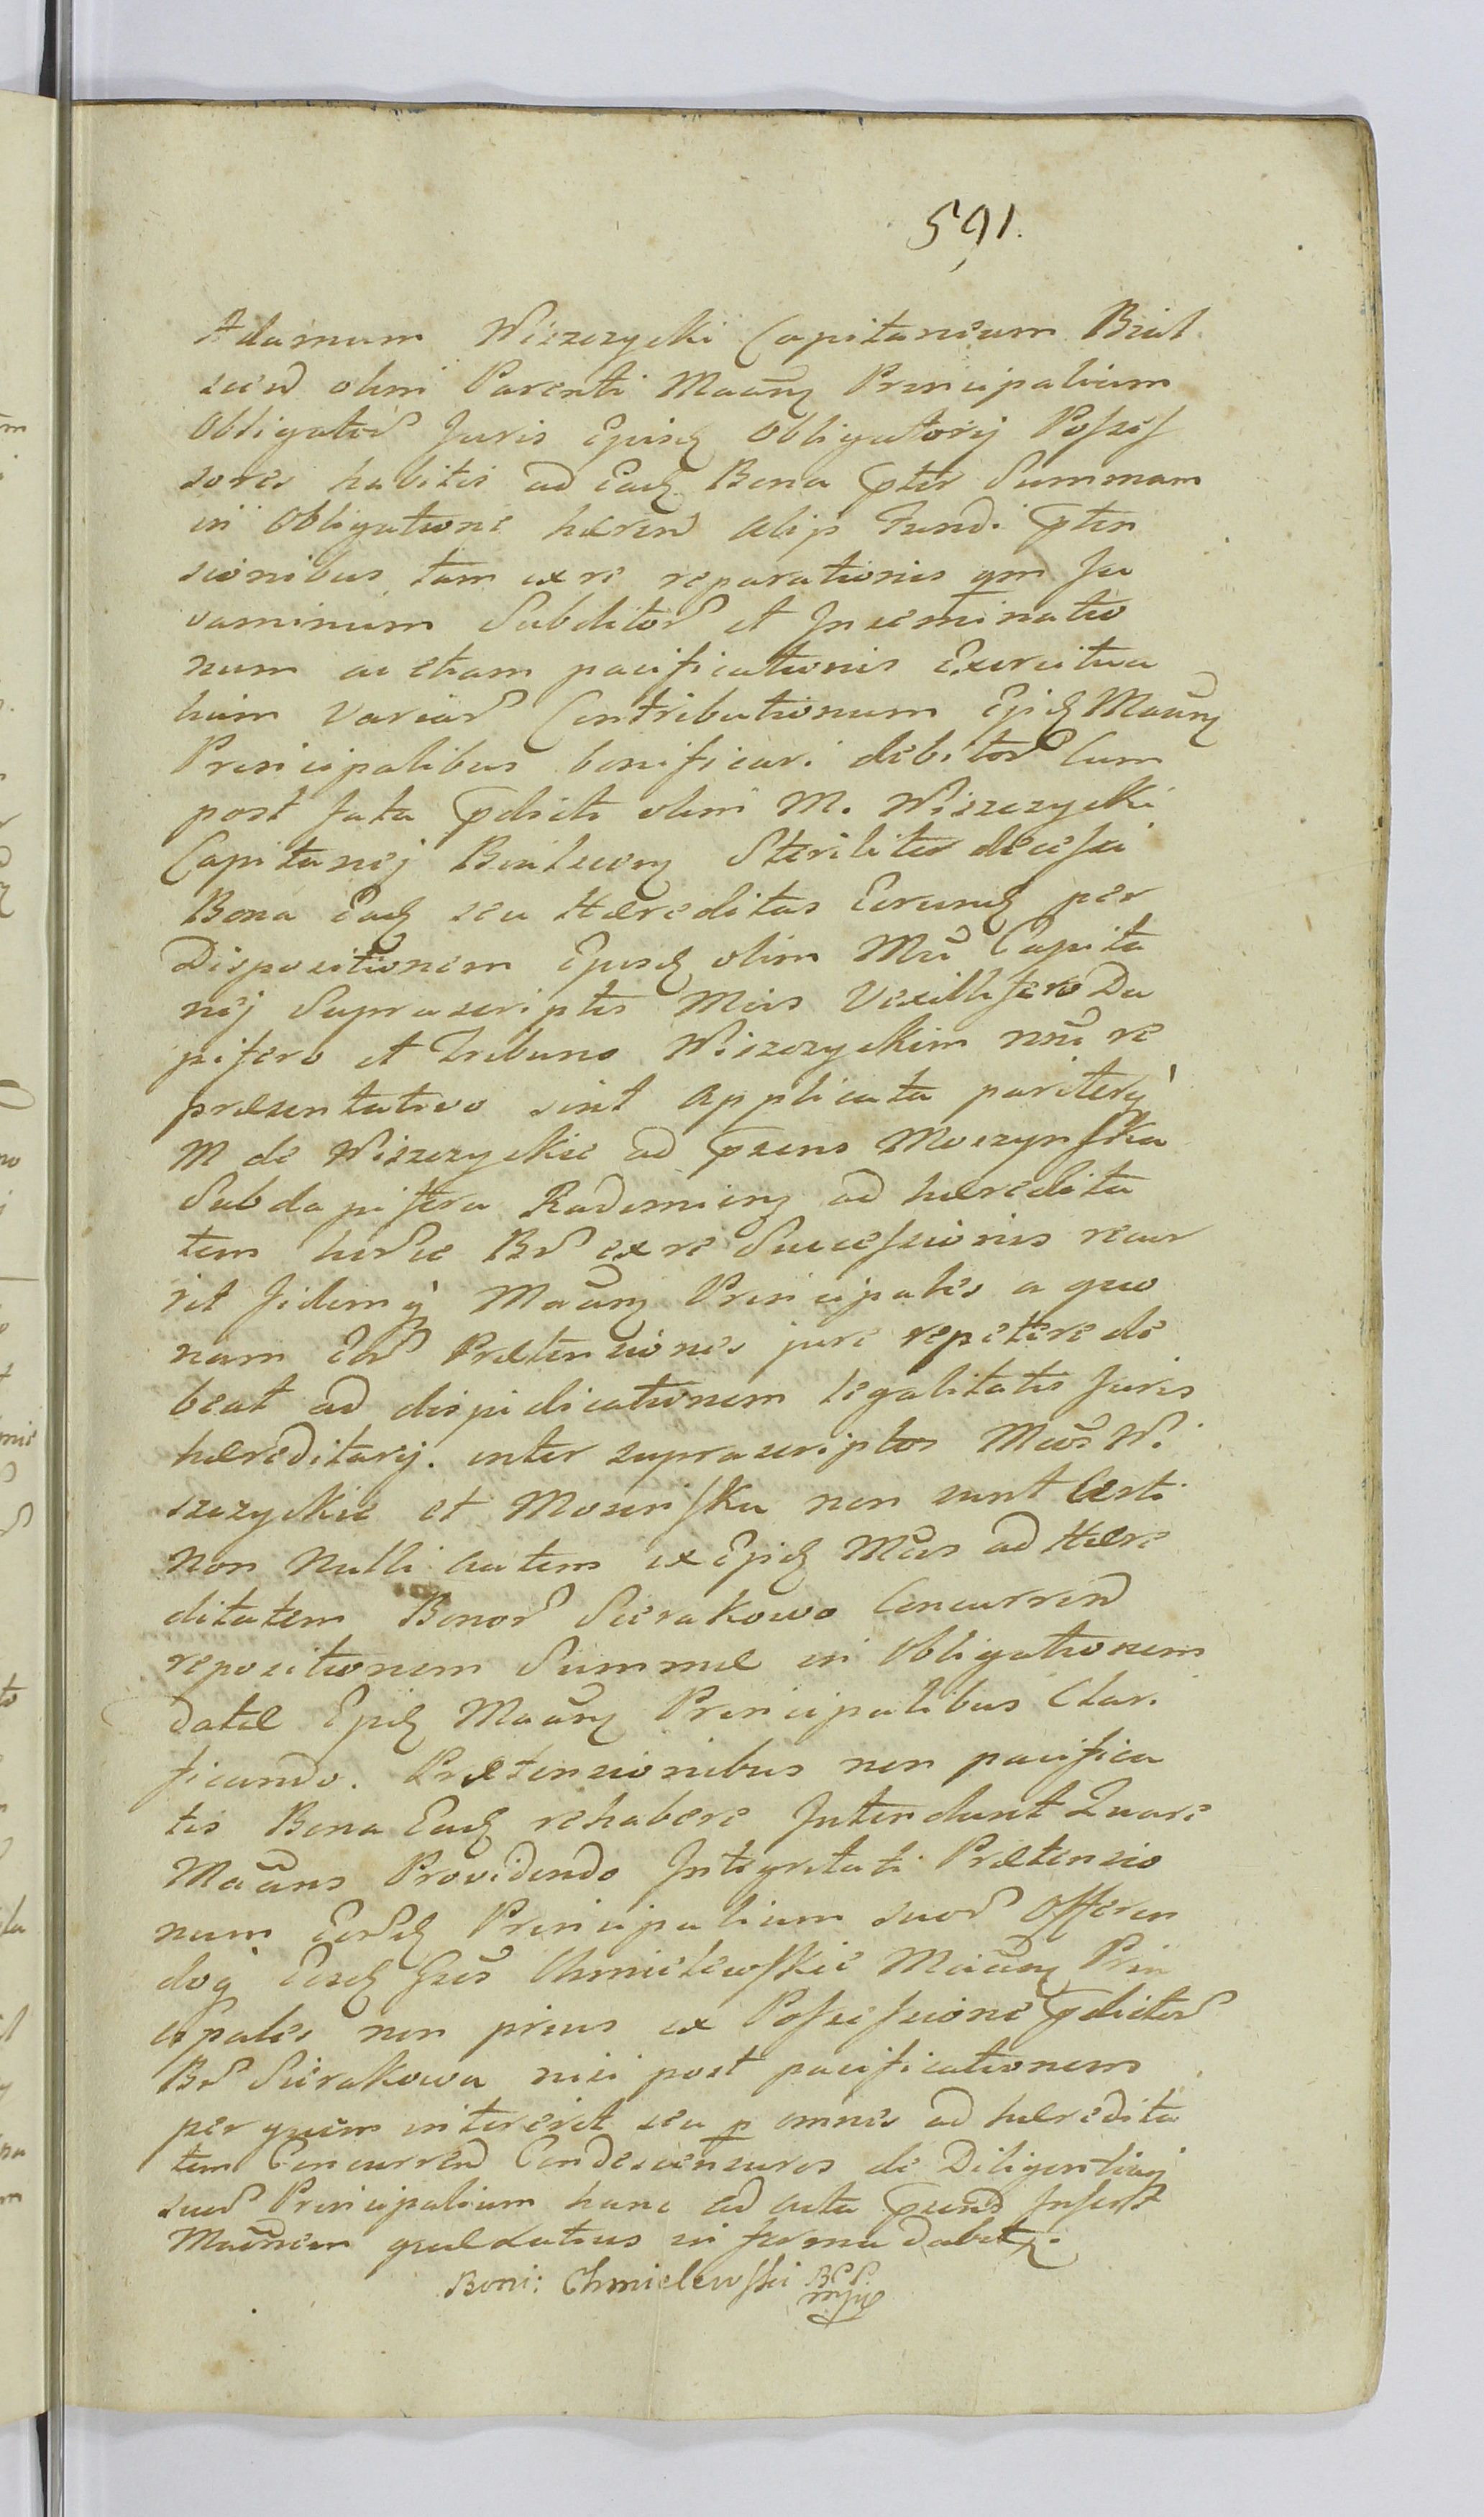 591.
Adamum Wiszczycki Capitaneum Bial
scen olim Parenti Maanm Principalium
Obligator Juris Ejusd Obligatorij Posses
sores habitis ad Ead Bona pter Summam
in Obligatione hæren aliis Fundi pten
sionibus tam ex re reparationis qm Ju
vaminum Subditor et Inseminatio
num ac etiam pacificationis Exercitua
lium Variar Contributionum Eid Maanm
Principalibus bonificari debitor Cum
post fata pdicti olim M. Wiszczycki
Capitanej Steriliter decessi
Bona Ead seu Hæreditas Eorund per
Dispositionem Ejusd olim Mci Capita
nej Suprascriptis Mcis Vexillifero Da
pifero et Tribuno Wiszczyckim re
præsentativo sint Applicata pariterq
M de Wiszczyckie ad præns Moszynska
Subdapifera ad hæredita
tem Br ex re Successionis recur
rit Iidemq Maanm Principales a quo
nam Ear Prætensiones jure repetere de
beat ad dispidicationem legalitatis Juris
hæreditarij. inter suprascriptos Mcos Wi
szczyckie et Moszinska non sunt Certi
Non Nulli autem ex Eisd Mcis ad Hære
ditatem Bonor Sierakowo Concurren
repositionem Summæ in Obligationem
Datæ Eid Maanm Principalibus Clari
ficando. Prætensionibus non pacifica
tis Bona Ead rehabere Intendunt Quare
Maans Providendo Integritati Prætensio
num Principalium suor Offeren
doq Eosd Chmielewskie Maanm Prin
cipales non prius ex Possessione pdictor
Br Sierakowa nisi post pacificationem
per quem intererit seu p omnes ad hæredita
tem Concurren Condescensuros de Diligentiaq
suor Principalium hanc ad acta Insert
Maonem quæ Latius in forma dabitr.
Boni: Chmielewski mpp